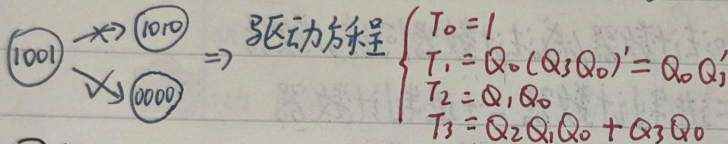 1001 ⇏ 1010 ⇒ 驱动方程 { T₀ = 1
T₁ = Q₀(Q₃Q₀)' = Q₀Q₃'
↘ 0000 T₂ = Q₁Q₀
T₃ = Q₂Q₁Q₀ + Q₃Q₀